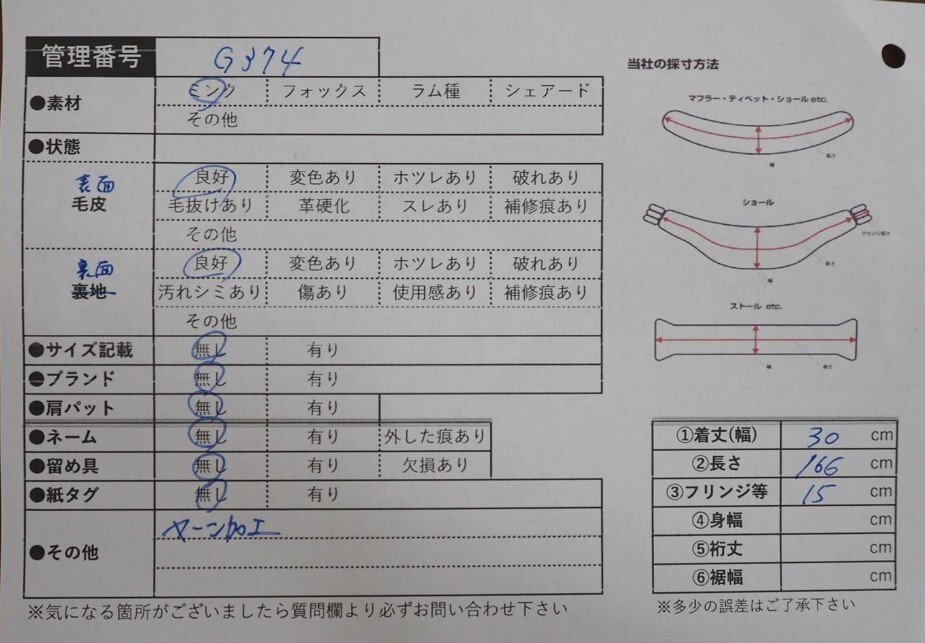 管理番号 G374
●素材 ミンク フォックス ラム種 シェアード
その他
●状態
表面
毛皮
良好 変色あり ホツレあり 破れあり
毛抜けあり 革硬化 スレあり 補修痕あり
その他
裏面
裏地
良好 変色あり ホツレあり 破れあり
汚れシミあり 傷あり 使用感あり 補修痕あり
その他
●サイズ記載 無し 有り
●ブランド 無し 有り
●肩パット 無し 有り
●ネーム 無し 有り 外した痕あり
●留め具 無し 有り 欠損あり
●紙タグ 無し 有り
●その他 ヤーン加工
※気になる箇所がございましたら質問欄より必ずお問い合わせ下さい
当社の採寸方法
マフラー・ティペット・ショール etc.
幅 長さ
ショール
フリンジ長さ
幅 長さ
ストール etc.
幅 長さ
①着丈(幅) 30 cm
②長さ 166 cm
③フリンジ等 15 cm
④身幅 cm
⑤裄丈 cm
⑥裾幅 cm
※多少の誤差はご了承下さい